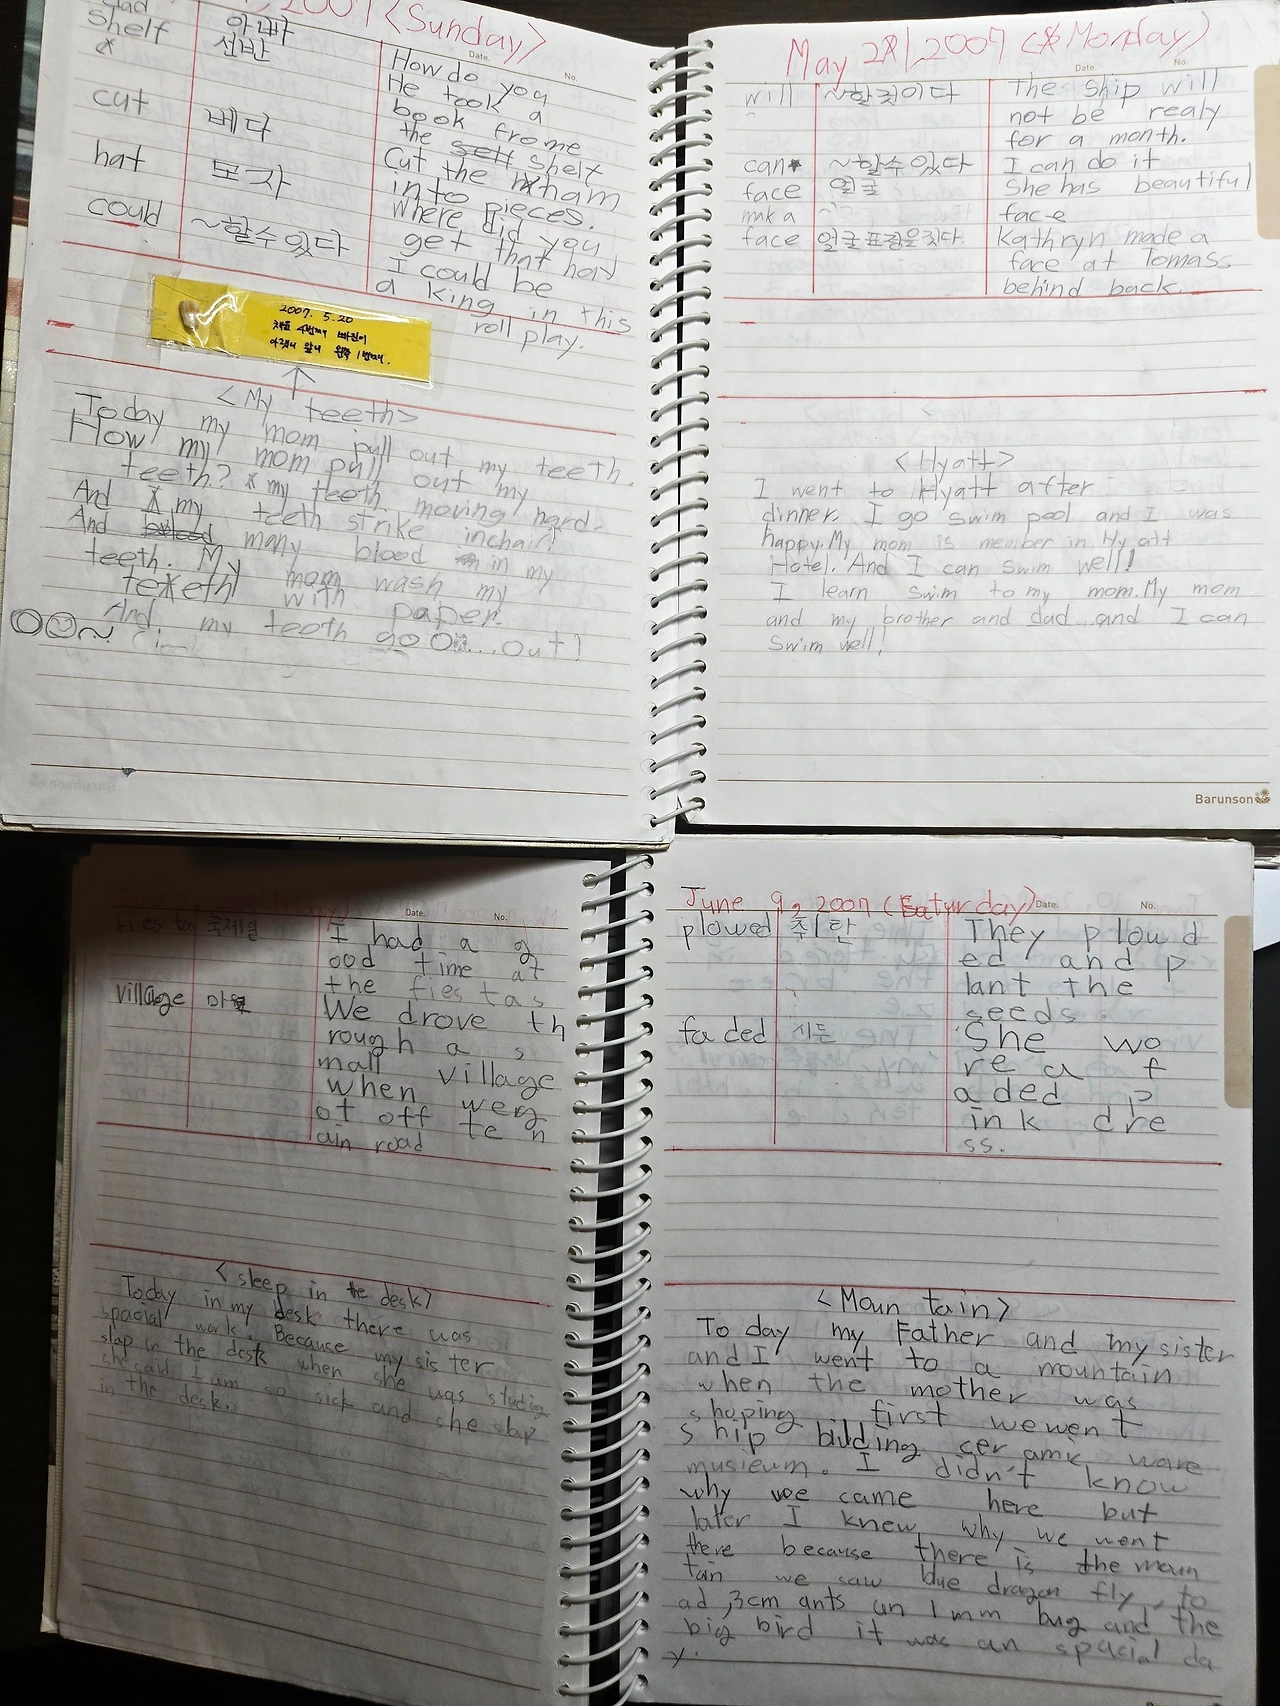 dad 아빠
2007 <Sunday>
shelf 선반
Date. No.
How do you
He took a
book frome
the self shelf
cut 베다
Cut the ham
into pieces.
hat 모자
Where did you
get that hat
could ~할수있다
I could be
a king in this
roll play.
2007. 5. 20
4번째 빠진이
아랫니 앞니 왼쪽 1번째.
<My teeth>
Today my mom pull out my teeth.
How my mom pull out my
teeth? my teeth moving hard.
And my teeth strike inchair!
And many blood in my
teeth. My mom wash my
teeth with paper.
And my teeth go O....out!
Barunson
May 21, 2007 <Monday>
Date. No.
will ~할것이다 The ship will
not be realy
for a month.
can ~할수있다 I can do it
face 얼굴 She has beautiful
face
mka a
face 얼굴표정을짓다. Kathryn made a
face at Tomass
behind back.
<Hyatt>
I went to Hyatt after
dinner. I go swim pool and I was
happy. My mom is member in Hyatt
Hotel. And I can swim well!
I learn swim to my mom. My mom
and my brother and dad...and I can
swim well!
Barunson
Date. No.
fiestas 축제일 I had a g
ood time at
the fiestas
village 마을 We drove th
rough a s
mall village
when we g
ot off te n
ain road
<sleep in the desk>
Today in my desk there was
spacial work. Because my sister
slap in the desk when she was studing
she said I am so sick and she slap
in the desk.
June 9, 2007 (Saturday)
Date. No.
plowed They plowd
ed and p
lant the
seeds.
faded 시든 She wo
re a f
aded p
ink dre
ss.
<Mountain>
Today my Father and my sister
and I went to a mountain
when the mother was
shoping first we went
ship bilding ceramic ware
musieum. I didn't know
why we came here but
later I knew why we went
there because there is the moun
tain we saw blue dragon fly, to
ad, 3cm ants an 1mm bug and the
big bird it was an spacial da
y.